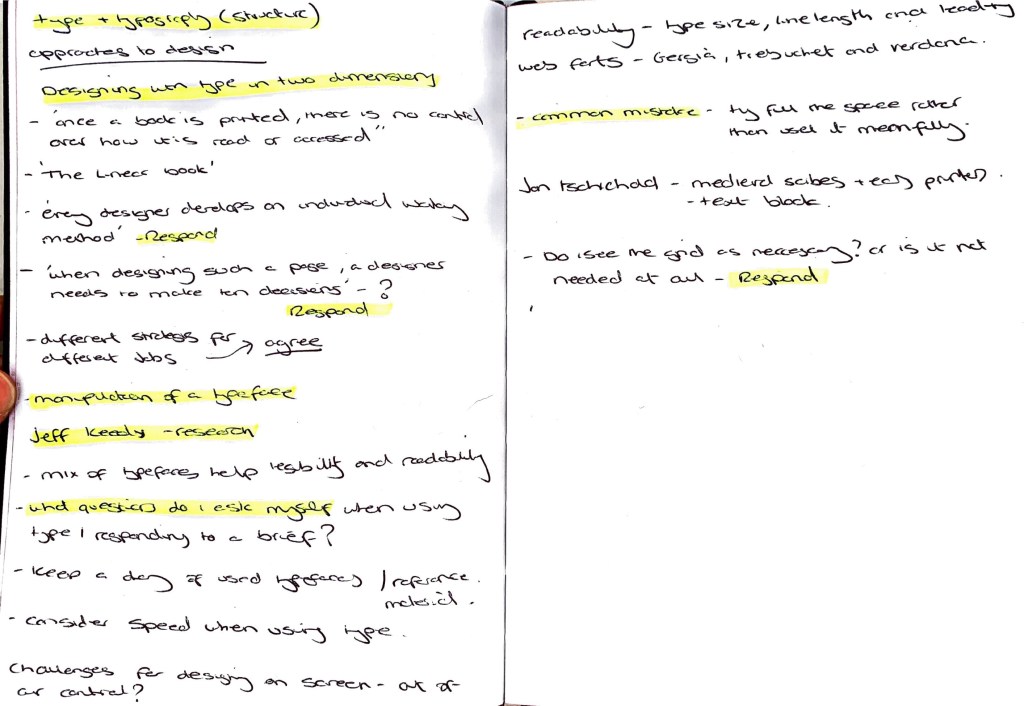 type + typography (structure)
approaches to design
Designing with type in two dimensions
- 'once a book is printed, there is no control
over how it is read or accessed"
- 'The Linear book'
- 'every designer develops an individual working
method' - Respond
- 'when designing such a page, a designer
needs to make ten decisions' - ?
Respond
- different strategies for
different jobs → agree
- manipulation of a typeface
Jeff Keedy - research
- mix of typefaces help legibility and readability
- what questions do i ask myself when using
type / responding to a brief?
- Keep a diary of used typefaces / reference
material.
- consider speed when using type.
Challenges for designing on screen - out of
our control?
readability - type size, line length and leading
web fonts - Georgia, trebuchet and verdana.
- common mistake - try fill the space rather
then use it meanfully.
Jan tschichold - medieval scibes + early printers.
- text block.
- Do i see the grid as necessary? or is it not
needed at all - Respond